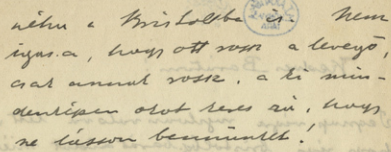 néha a Bristolba is. Nem
igaz.a, hogy ott rossz a levegő,
csak annak rossz, a ki min-
denképen okot keres rá, hogy
ne lásson bennünket!